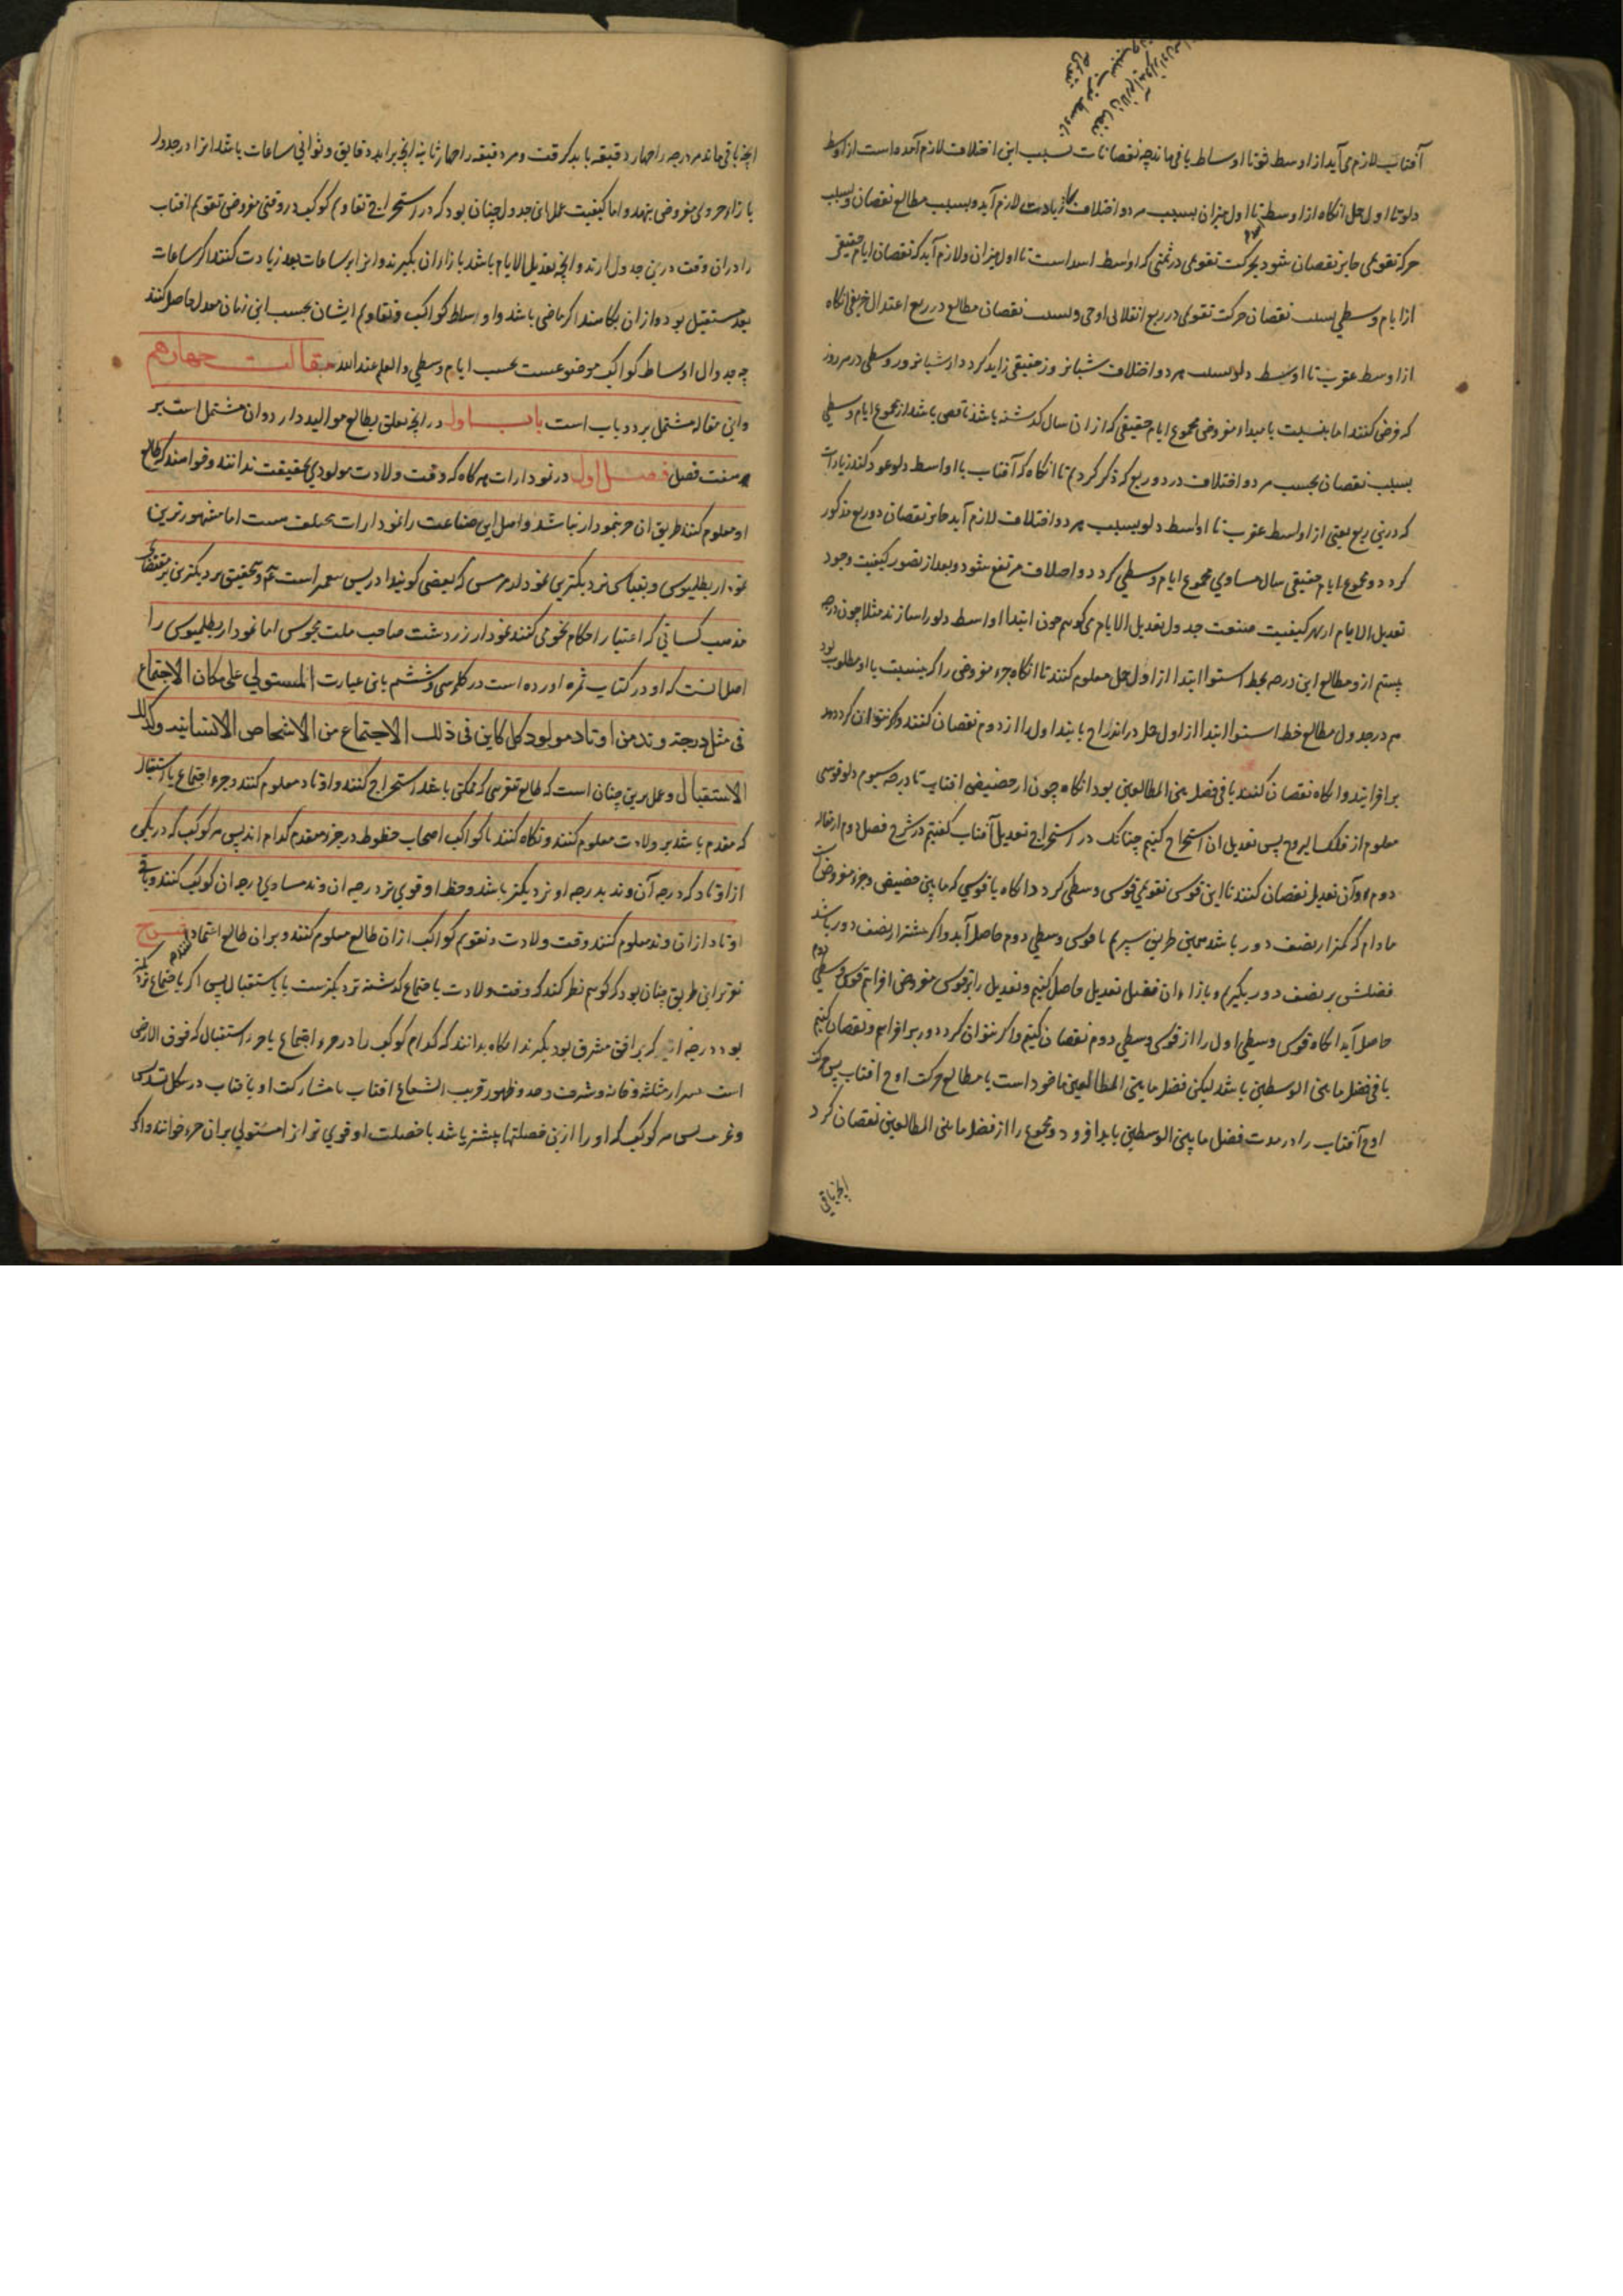 آفتاب لازم می آید از اوسط ثور تا اوساط باقی ماند چه نقصانات بسبب این اختلاف لازم آمده است از اوسط
دلو تا اول حمل انکاه از اوسط تا اول میزان بسبب هر دو اختلاف زیادت لازم آید و بسبب مطالع نقصان و بسبب
حرکة تقویمی جابر نقصان شود بحرکت تقویمی در ثمنی که اواسط اسد است تا اول میزان ولازم آید که نقصان ایام حقیقی
از ایام وسطی بسبب نقصان حرکت تقویمی در ربع انقلابی اوجی و بسبب نقصان مطالع در ربع اعتدال خریفی انکاه
از اوسط عقرب تا اوسط دلو بسبب هر دو اختلاف شبانروز حقیقی زاید کردد از شبانروز وسطی در هر روز
که فرض کنند اما بنسبت با مبداء مفروض مجموع ایام حقیقی که از ان سال کذشته باشد ناقص باشد از مجموع ایام وسطی
بسبب نقصان بحسب هر دو اختلاف در دو ربع که ذکر کردیم تا انکاه که آفتاب با اواسط دلو عود کند زیادات
که درین ربع یعنی از اواسط عقرب تا اواسط دلو بسبب هر دو اختلاف لازم آید جابر نقصان دو ربع مذکور
کردد و مجموع ایام حقیقی سال مساوی مجموع ایام وسطی کردد و اختلاف مرتفع شود و بعد از تصور کیفیت وجود
تعدیل الایام از بهر کیفیت صنعت جدول تعدیل الایام می کوییم چون ابتدا اواسط دلو را سازند مثلا چون درجه
بیستم ازو مطالع این درجه بخط استوا ابتدا از اول حمل معلوم کنند تا انکاه جزء مفروض را که بنسبت با او مطلوب بود
هم در جدول مطالع خط استوا ابتدا از اول حمل در اندراج یابند اول را از دوم نقصان کنند و اکر نتوان کرد دور
بر افزایند و انکاه نقصان کنند باقی فضل بین المطالعین بود انکاه چون از حضیض افتاب تا درجه بیستم دلو قوسی
معلوم از فلک البروج پس تعدیل ان استخراج کنیم چنانک در استخراج تعدیل آفتاب کفتیم در شرح فصل دوم از مقاله
دوم و آن تعدیل نقصان کنند تا این قوس تقویمی قوس وسطی کردد و انکاه با قوسی که مابین حضیض و جزء مفروض است
مادام که کمتر از نصف دور باشد همین طریق سپریم تا قوس وسطی دوم حاصل آید و اکر بیشتر از نصف دور باشد
فضلش بر نصف دور بکیریم و بازاء ان فضل تعدیل حاصل کنیم و تعدیل را بر قوس مفروض افزاییم قوس وسطی دوم
حاصل آید انکاه قوس وسطی اول را از قوس وسطی دوم نقصان کنیم و اکر نتوان کرد دور بر افزاییم و نقصان کنیم
باقی فضل مابین الوسطین باشد لیکن فضل مابین المطالعین ماخوذ است با مطالع حرکت اوج افتاب پس حرکت
اوج آفتاب را در مدت فضل مابین الوسطین باید افزود و مجموع را از فضل مابین المطالعین نقصان کرد
انچه باقی
انچه باقی ماند هر درجه را چهار دقیقه باید کرفت و هر دقیقه را چهار ثانیه انچه براید دقایق و ثوانی ساعات باشد انرا در جدول
بازاء جزوی مفروض بنهند و اما کیفیت عمل این جدول چنان بود که در استخراج تقاویم کواکب در وقتی مفروض تقویم افتاب
را در ان وقت درین جدول ارند و انچه تعدیل الایام باشد بازاء ان بکیرند و انرا بر ساعات بعد زیادت کنند اکر ساعات
بعد مستقبل بود و از ان بکاهند اکر ماضی باشد و اوساط کواکب و تقاویم ایشان بحسب این زمان معدل حاصل کنند
چه جدوال اوساط کواکب موضوعست بحسب ایام وسطی والعلم عند الله مقالت چهارم
و این مقاله مشتمل بر دو باب است باب اول در انچه تعلق بطالع موالید دارد و ان مشتمل است بر
هفت فصل فصل اول در نمودارات هر کاه که وقت ولادت مولودی بحقیقت ندانند و خواهند که طالع
او معلوم کنند طریق ان جز نمودار نباشد و اهل این صناعت را نمودارات مختلف هست اما مشهورترین
نمودار بطلیموس و بقیاس نزدیکترین نمودار هرمس که بعضی کویند ادریس پیغمبر است عم و تحقیق نزدیکترین بر مقتضای
مذهب کسانی که اعتبار احکام نجوم می کنند نمودار زردشت صاحب ملت مجوس اما نمودار بطلیموس را
اصل انست که او در کتاب ثمره اورده است در کلمه سی و ششم باین عبارت المستولی علی مکان الاجتماع
فی مثل درجته وتد من اوتاد مولود کل کاین فی ذلک الاجتماع من الاشخاص الانسانیه وکذلک
الاستقبال و عمل برین چنان است که طالع تقریبی که ممکن باشد استخراج کنند و اوتاد معلوم کنند و جزء اجتماع یا استقبال
که مقدم باشد بر ولادت معلوم کنند و نکاه کنند تا کواکب اصحاب حظوظ در جزء مقدم کدام اند پس هر کوکب که در یکی
از اوتاد که درجه آن وتد بدرجه او نزدیکتر باشد و حظ او قوی تر درجه ان وتد مساوی درجه ان کوکب کنند و باقی
اوتاد از ان وتد معلوم کنند وقت ولادت و تقویم کواکب از ان طالع معلوم کنند و بران طالع اعتماد کنند شرح
تقریر این طریق چنان بود که کوییم نظر کنند که وقت ولادت باجتماع کذشته نزدیکترست یا باستقبال پس اکر باجتماع نزدیکتر
بود درجه که بر افق مشرق بود بکیرند انکاه بدانند که کدام کوکب را در جزء اجتماع یا جزء استقبال که فوق الارض
است مثلثه و خانه و شرف و حد و ظهور قریب الشعاع افتاب با مشارکت او با افتاب در شکل تسدیس
پس هر کوکب که او را ازین خصلتها بیشتر باشد یا خصلت او قوی تر از مستولی بران جزء خوانند و اکر